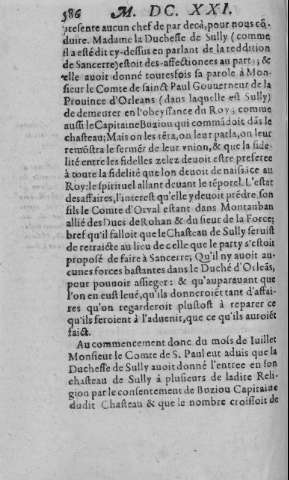 586 M. DC. XXI.
presente aucun chef de par decà, pour nous cõ-
duire. Madame la Duchesse de Sully (comme
il a esté dit cy-dessus en parlant de la reddition
de Sancerre) estoit des-affectionees au party; &
elle auoit donné toutesfois sa parole à Mon-
sieur le Comte de sainct Paul Gouuerneur de la
Prouince d'Orleans (dans laquelle est Sully)
de demeurer en l'obeyssance du Roy; comme
aussi le Capitaine Buziou qui commãdoit dãs le
chasteau; Mais on les tẽta, on leur parla, on leur
remõstra le sermẽt de leur vnion, & que la fide-
lité entre les fidelles zelez deuoit estre preferee
à toute la fidelité que lon deuoit de naissãce au
Roy: le spirituel allant deuant le tẽporel. L'estat
des affaires, l'interest qu'elle y deuoit prẽdre, son
fils le Comte d'Orval estant dans Montauban
allié des Ducs de Rohan & du sieur de la Force;
bref qu'il falloit que le Chasteau de Sully seruist
de retraicte au lieu de celle que le party s'estoit
proposé de faire à Sancerre; Qu'il ny auoit au-
cunes forces bastantes dans le Duché d'Orleãs,
pour pouuoir assieger: & qu'auparauant que
l'on en eust leué, qu'ils donneroiẽt tant d'affai-
res qu'on regarderoit plustost à reparer ce
qu'ils feroient à l'aduenir, que ce qu'ils auroiẽt
faict.
Au commencement donc du mois de Iuillet
Monsieur le Comte de S. Paul eut aduis que la
Duchesse de Sully auoit donné l'entree en son
chasteau de Sully à plusieurs de ladite Reli-
gion par le consentement de Buziou Capitaine
dudit Chasteau & que le nombre croissoit de